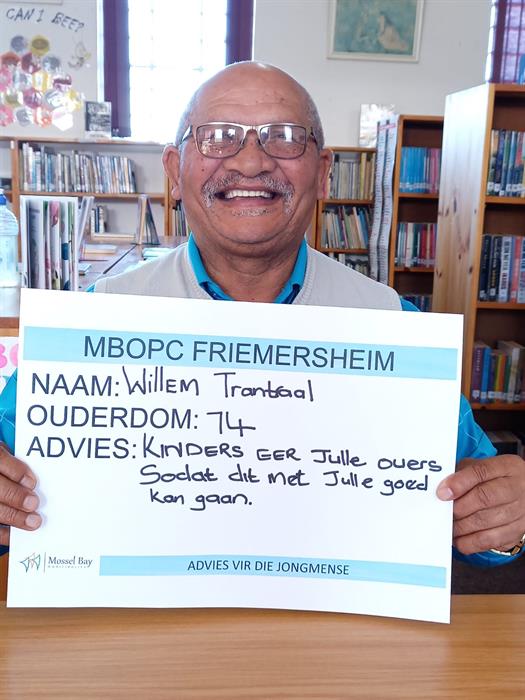 CAN I BEE?
MBOPC FRIEMERSHEIM
NAAM: Willem Trantaal
OUDERDOM: 74
ADVIES: KINDERS EER Julle ouers
Sodat dit met Julle goed
kan gaan.
Mossel Bay
MUNICIPALITY
ADVIES VIR DIE JONGMENSE